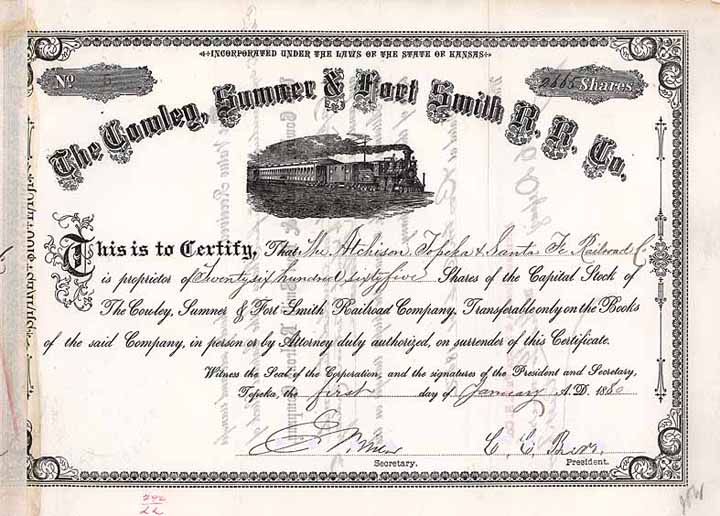 INCORPORATED UNDER THE LAWS OF THE STATE OF KANSAS
No 5
2665 Shares
The Cowley, Sumner & Fort Smith R. R. Co.
This is to Certify, That The Atchison, Topeka & Santa Fe Railroad Co
is proprietor of Twenty six hundred sixty five Shares of the Capital Stock of
The Cowley, Sumner & Fort Smith Railroad Company, Transferable only on the Books
of the said Company, in person or by Attorney duly authorized, on surrender of this Certificate.
Witness the Seal of the Corporation, and the signatures of the President and Secretary,
Topeka, the first day of January A.D. 1880
Secretary.
C. C.
President.